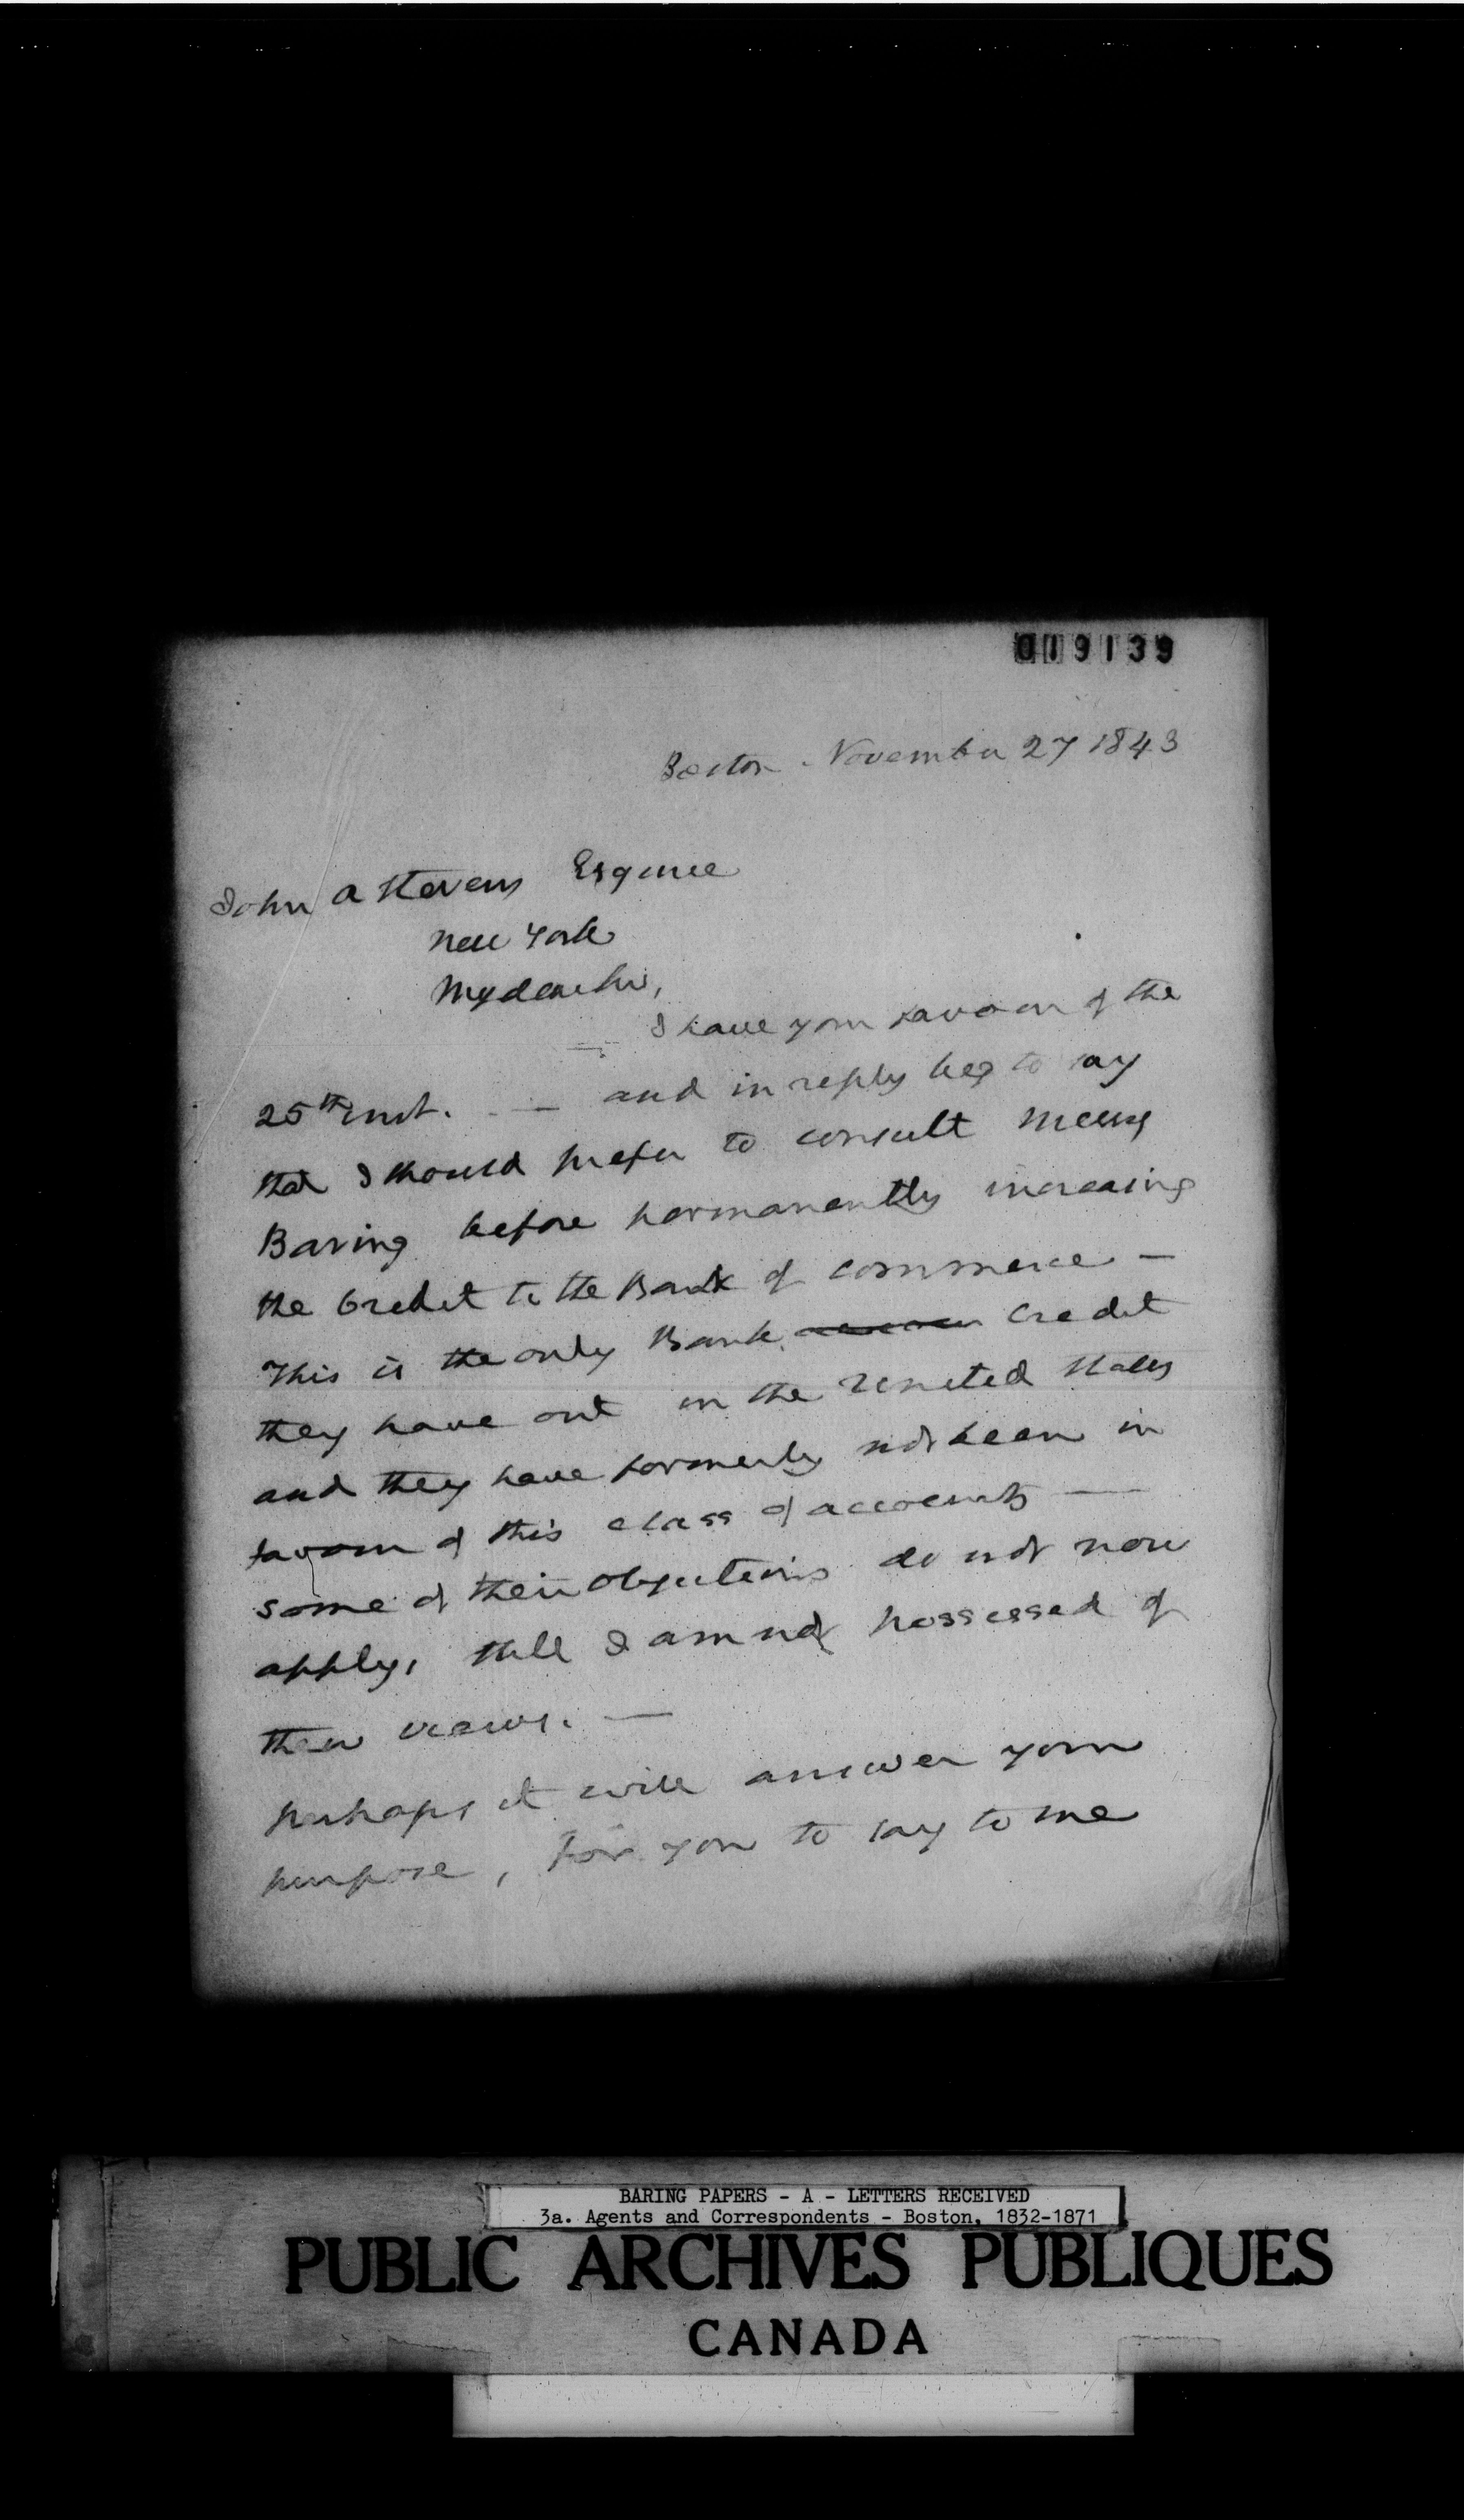 019139
Boston November 27 1843
John A Stevens Esquire
New York
My dear Sir,
I have your favour of the
25th inst. — and in reply beg to say
that I should prefer to consult Messrs
Baring before permanently increasing
the Credit to the Bank of Commerce —
This is the only Bank credit
they have out in the United States
and they have formerly not been in
favour of this class of accounts —
some of their objections do not now
apply, still I am not possessed of
their views. —
perhaps it will answer your
purpose, for you to say to me
BARING PAPERS - A - LETTERS RECEIVED
3a. Agents and Correspondents - Boston, 1832-1871
PUBLIC ARCHIVES PUBLIQUES
CANADA